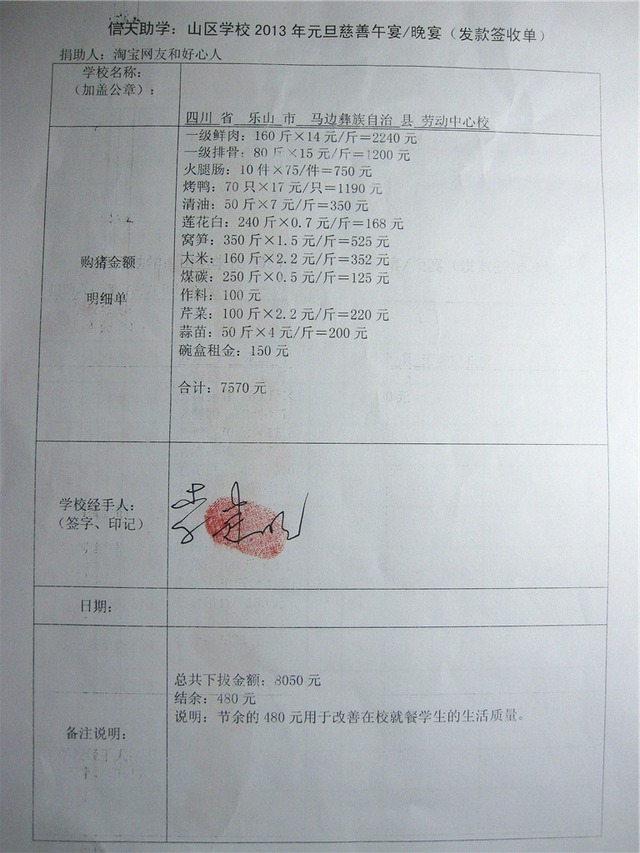 信天助学：山区学校 2013 年元旦慈善午宴/晚宴（发款签收单）
捐助人：淘宝网友和好心人
学校名称：
（加盖公章）：
四川 省 乐山 市 马边彝族自治 县 劳动中心校
购猪金额
明细单
一级鲜肉：160 斤×14 元/斤=2240 元
一级排骨：80 斤×15 元/斤=1200 元
火腿肠：10 件×75/件=750 元
烤鸭：70 只×17 元/只=1190 元
清油：50 斤×7 元/斤=350 元
莲花白：240 斤×0.7 元/斤=168 元
窝笋：350 斤×1.5 元/斤=525 元
大米：160 斤×2.2 元/斤=352 元
煤碳：250 斤×0.5 元/斤=125 元
作料：100 元
芹菜：100 斤×2.2 元/斤=220 元
蒜苗：50 斤×4 元/斤=200 元
碗盒租金：150 元
合计：7570 元
学校经手人：
（签字、印记）
日期：
备注说明：
总共下拔金额：8050 元
结余：480 元
说明：节余的 480 元用于改善在校就餐学生的生活质量。